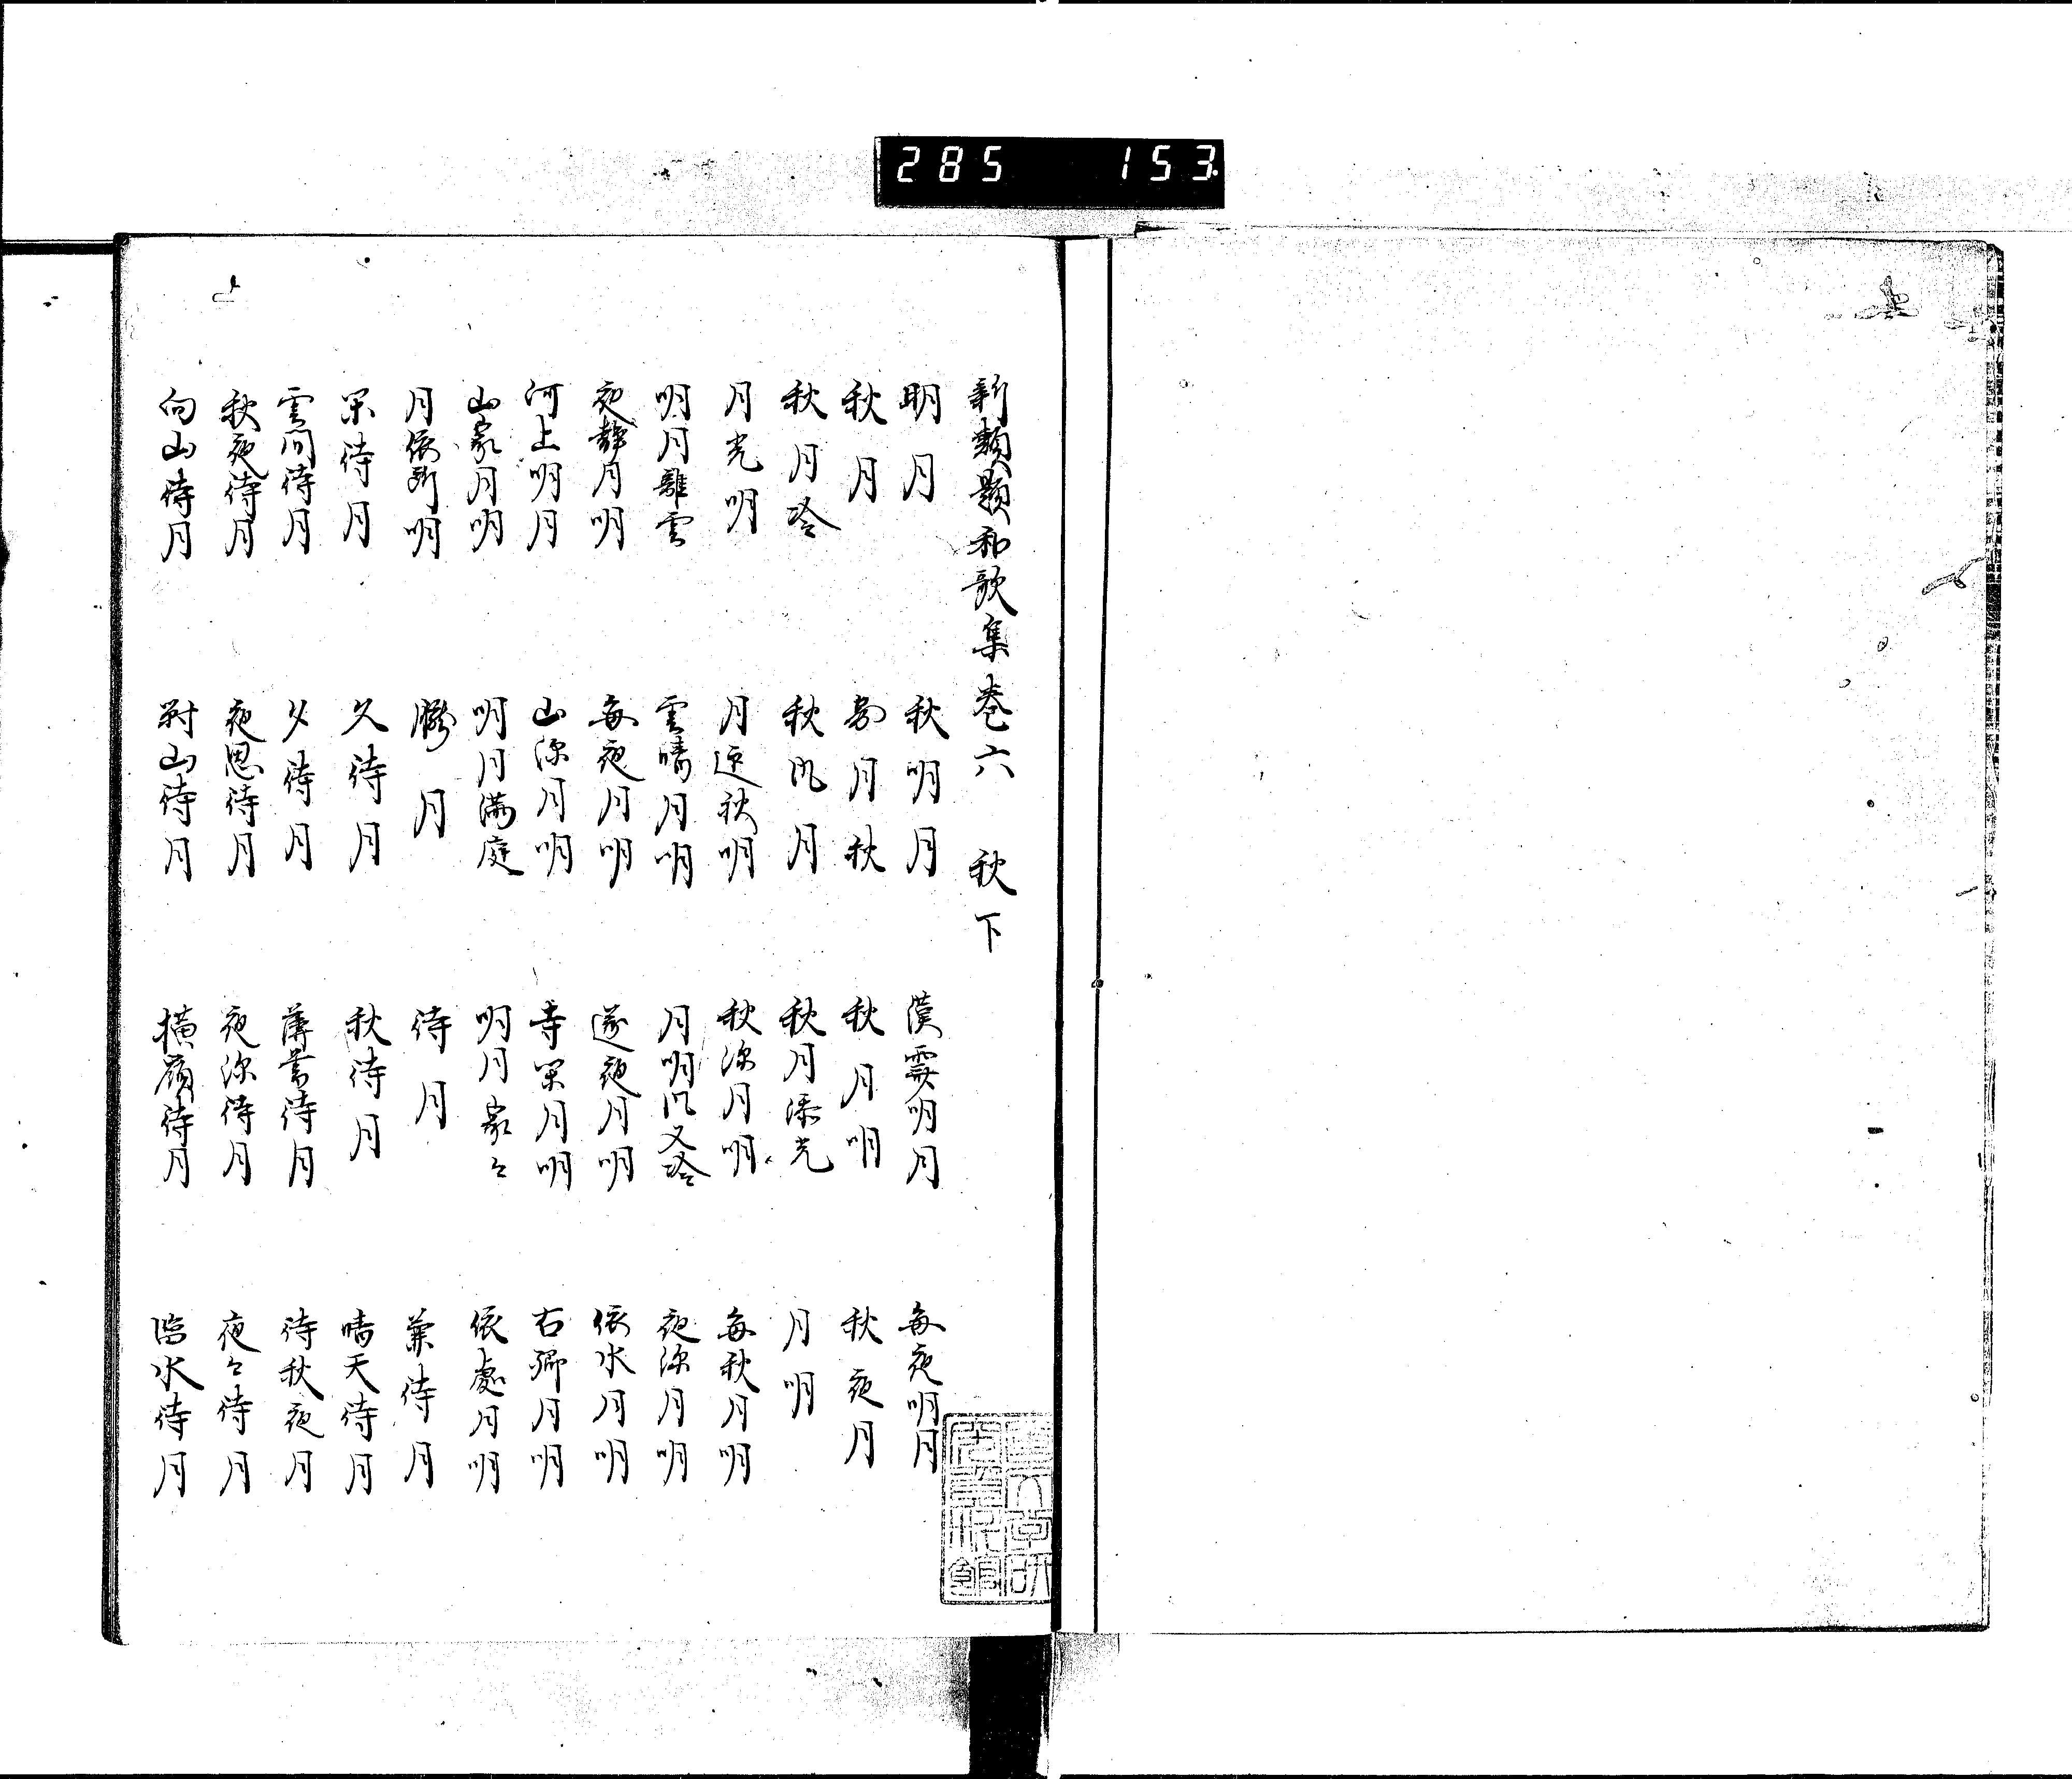 285 153
新類題和歌集巻六 秋下
明月 秋明月 漢雲明月 毎夜明月
秋月 月秋 秋月明 秋夜月
秋月冷 秋風月 秋月添光 月明
月光明 月逐秋明 秋深月明 毎秋月明
明月離雲 雲晴月明 月明風又冷 夜深月明
夜静月明 毎夜月明 逐夜月明 依水月明
河上明月 山深月明 寺閑月明 古郷月明
山家月明 明月満庭 明月家々 依處月明
月依所明 朧月 待月 兼待月
閑待月 久待月 秋待月 晴天待月
雲間待月 夕待月 薄暮待月 待秋夜月
秋夜待月 夜思待月 夜深待月 夜々待月
向山待月 対山待月 横嶺待月 臨水待月